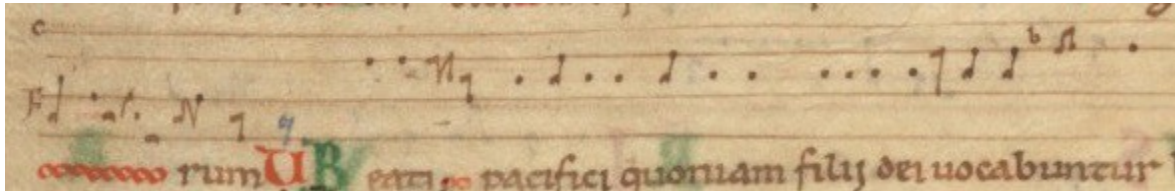 rum V Beati pacifici quoniam filij dei uocabuntur